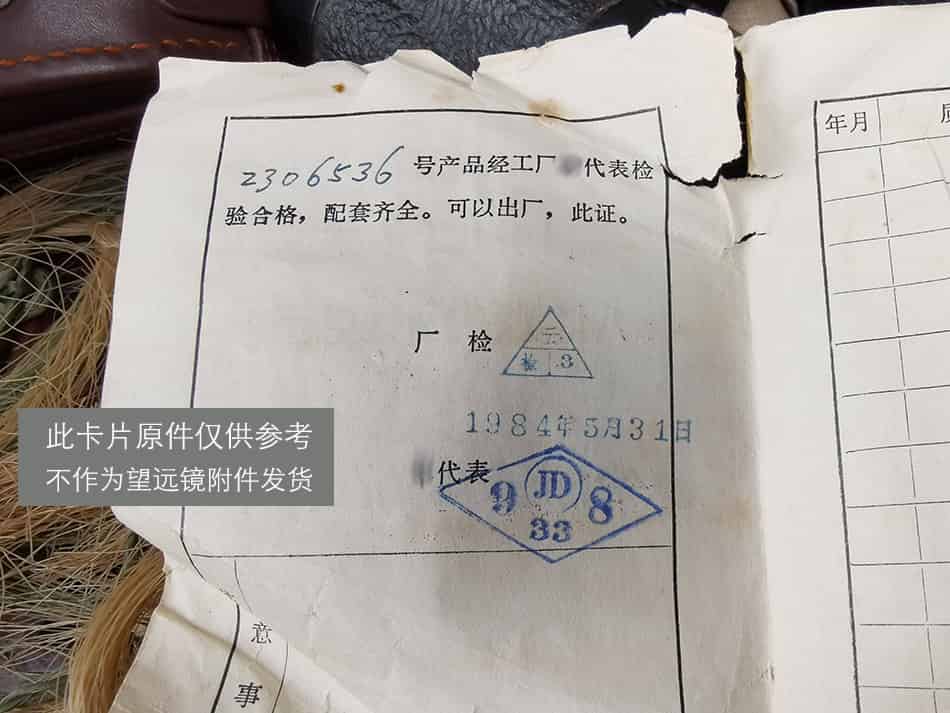 2306536号产品经工厂 代表检
验合格，配套齐全。可以出厂，此证。
厂 检
云
检 3
1984年5月31日
代表
9 JD 8
33
意
事
年月
此卡片原件仅供参考
不作为望远镜附件发货